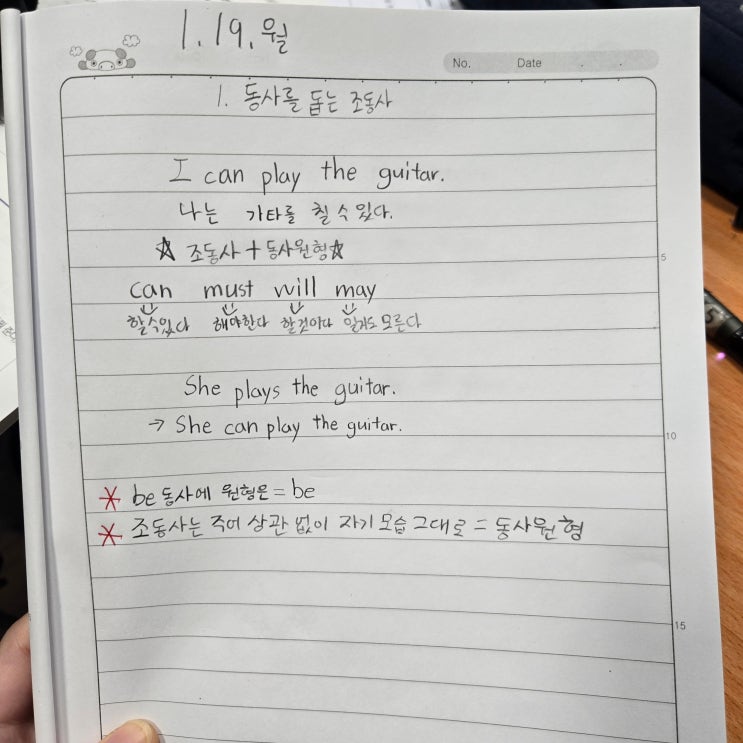 1.19.월
No. Date
1. 동사를 돕는 조동사
I can play the guitar.
나는 기타를 칠 수 있다.
☆ 조동사 + 동사원형 ☆
5
can must will may
할 수 있다 해야한다 할 것이다 일지도 모른다
She plays the guitar.
→ She can play the guitar.
10
* be 동사에 원형은 = be
* 조동사는 주어 상관 없이 자기 모습 그대로 = 동사원형
15